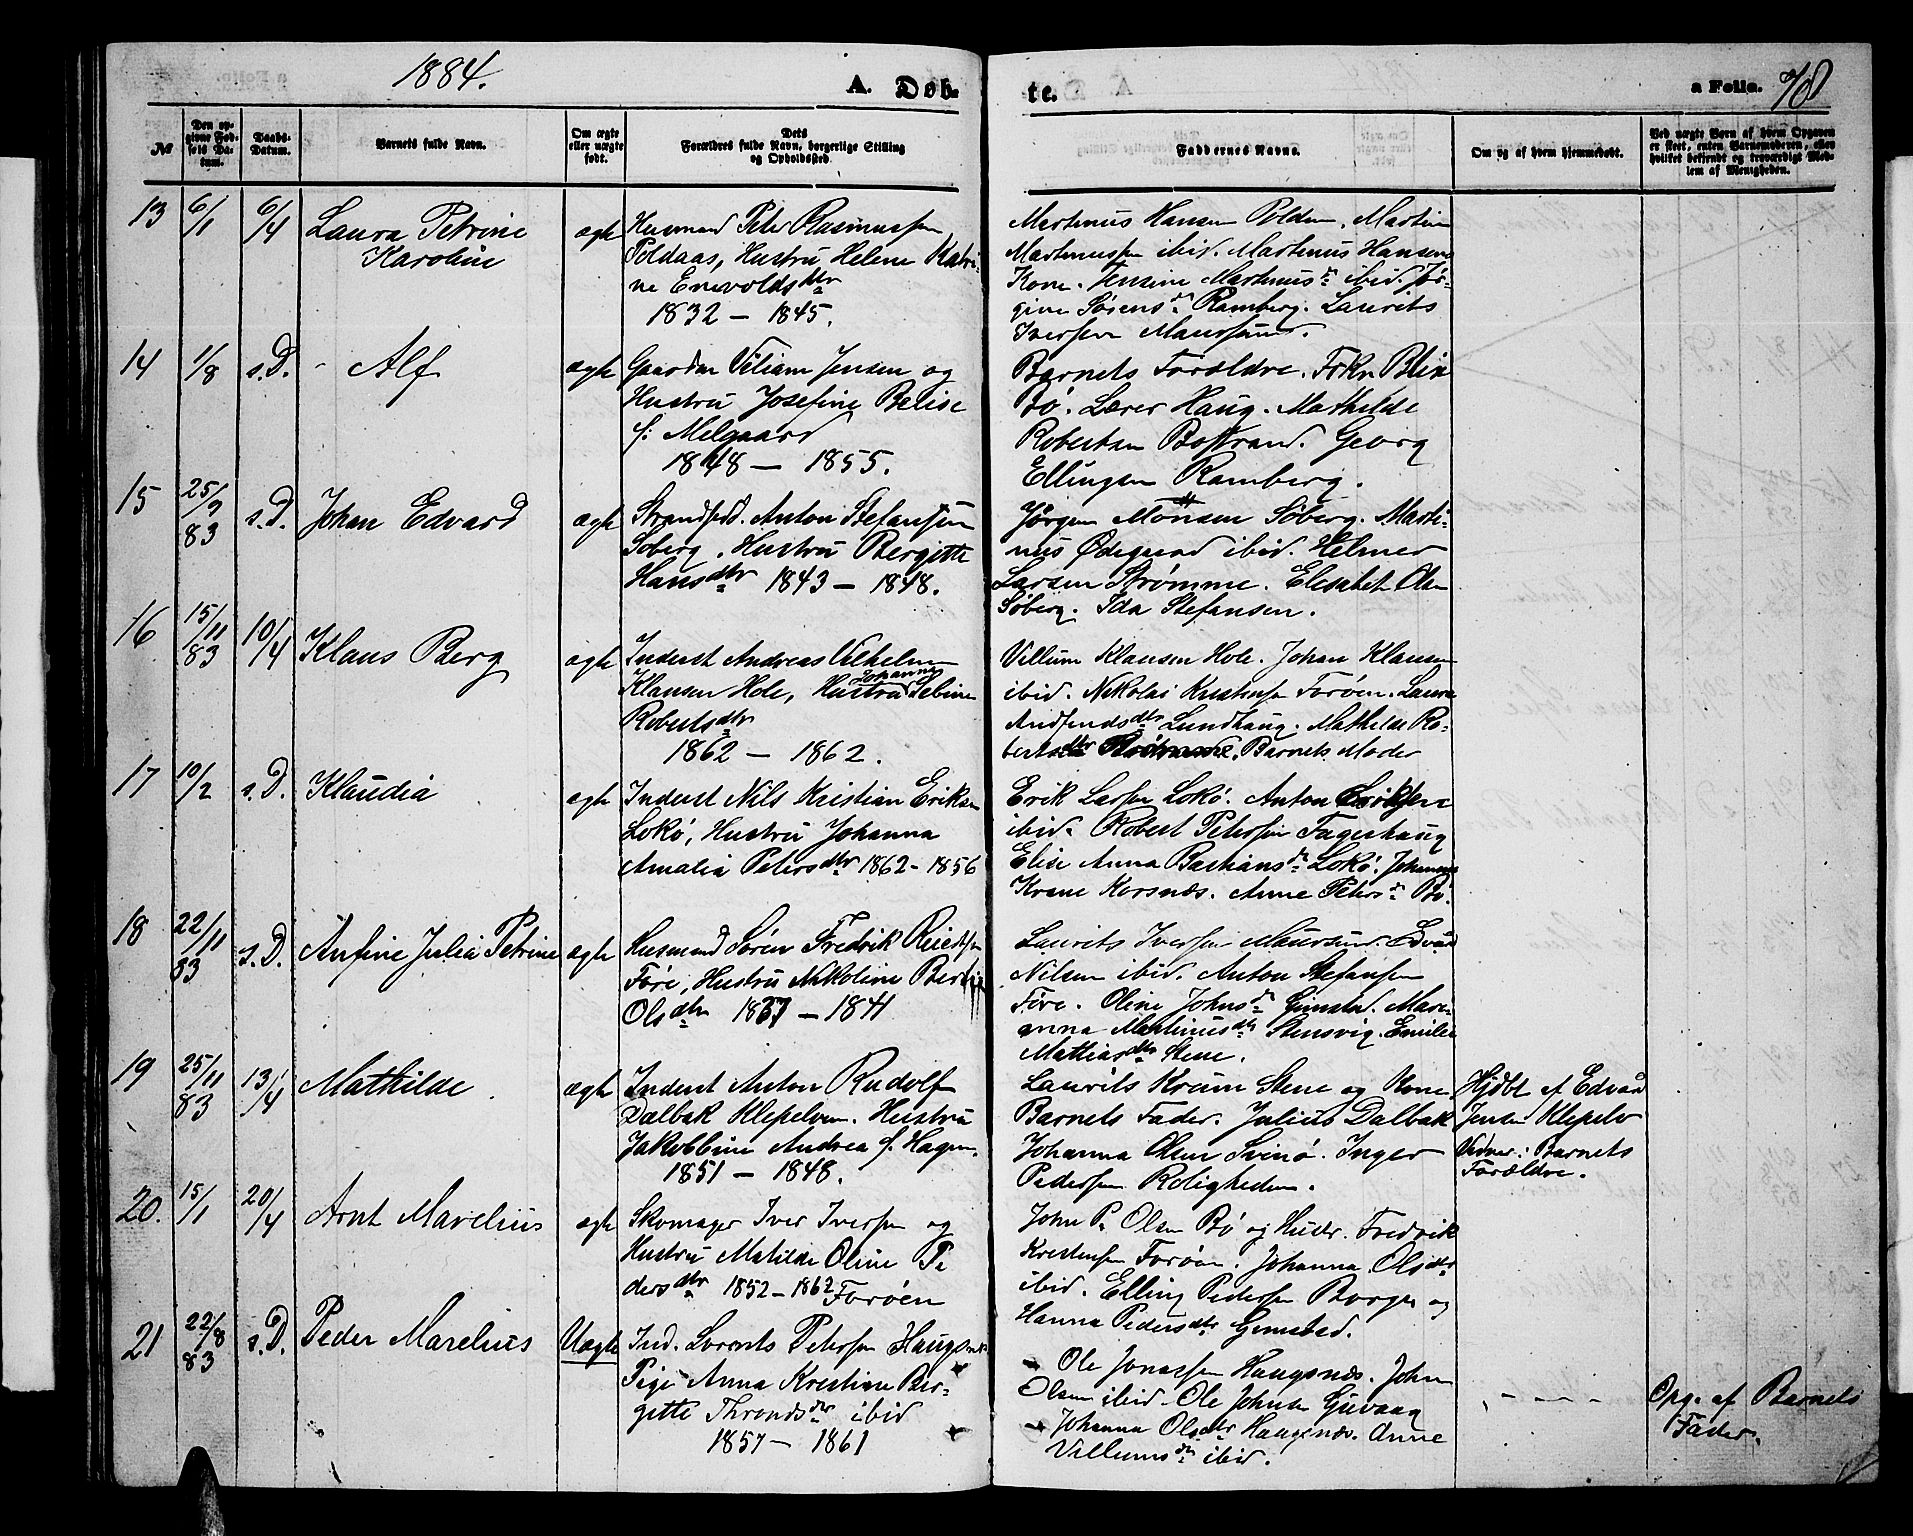 1884.
A. Døb-
te.
a Folio. 78
№
Den op-
givne Fød-
sels Da-
tum.
Daabs-
Datum.
Barnets fulde Navn.
Om ægte
eller uægte
født.
Dets
Forældres fulde Navn, borgerlige Stilling
og Opholdssted.
Faddernes Navne.
Om og af hvem hjemmedøbt.
Ved uægte Børn af hvem Opgaven
er skeet, enten Barnemoderen, eller
hvilket bekjendt og troværdigt Med-
lem af Menigheden.
13 6/1 6/4 Laura Petrine
Karoline
ægte Husmand Peter Rasmussen
Poldaas, Hustru Helene Katri-
ne Enevoldsdtr
1832 - 1845.
Martinus Hansen Polden. Martin
Martinussen ibid. Martinus Hansens
Kone. Jensine Martinusd. ibid. Jør-
gine Sørensd. Ramberg. Laurits
Iversen Maursund.
14 1/8 s.D. Alf
ægte Gaardm Viliam Jensen og
Hustru Josefine Belise
f: Melgaard
1848 - 1855.
Barnets Forældre. Frkn. Blix
Bø. Lærer Haug. Mathilde
Robertsen Bøstrand. Georg
Ellingsen Ramberg.
15 25/9 83 s.D. Johan Edvard
ægte Strandsidd. Anton Stefansen
Søberg, Hustru Bergitte
Hansdtr 1843 - 1848.
Jørgen Monsen Søberg. Marti-
nus Ødegaard ibid. Helmer
Larsen Strømme. Elisabet Olsen
Søberg. Ida Stefansen.
16 15/11 83 10/4 Klaus Berg
ægte Inderst Andreas Vilhelm
Klausen Hole, Hustru Johanna Sebine
Robertsdtr
1862 - 1862.
Villum Klausen Hole. Johan Klausen
ibid. Nikolai Kristensen Forøen. Laura
Andfindsdtr Lundhaug. Mathilde Ro-
bertsdtr Barnets Moder
17 10/2 s.D. Klaudia
ægte Inderst Nils Kristian Eriksen
Lokø, Hustru Johanna
Amalia Petersdtr 1862 - 1856
Erik Larsen Lokø. Anton Eriksen
ibid. Robert Petersen Fagerhaug
Elise Anna Bastiansd. Lokø. Johanna
Krane Korsnæs. Anne Petersd. Bø.
18 22/11 83 s.D. Anfine Julia Petrine
ægte Husmand Søren Fredrik
Føre, Hustru Nikoline
Olsdtr 1837 - 1841
Laurits Iversen Maursund. Edvard
Nilsen ibid. Anton Stefansen
Føre. Oline Johnsd. Gimstad. Mari-
anna Martinusdtr Steensvig. Emilie
Mattiasdtr Stene.
19 25/11 83 13/4 Mathilde
ægte Inderst Anton Rudolf
Dalbak Klepelven. Hustru
Jakobbine Andrea f. Hagen.
1851 - 1848.
Laurits Krum Stene og Kone
Barnets Fader. Julius Dalbak
Johanna Olsen Svinø. Inger
Pedersen Roligheden.
Hjdbt af Edvard
Jensen Klepelv
Vidner: Barnets
Forældre.
20. 15/1 20/4 Arnt Marelius
ægte Skomager Iver Iversen og
Hustru Matilde Oline Pe
dersdtr 1852 - 1862 Forøen
John P. Olsen Bø og Hustr. Fredrik
Kristensen Forøen. Johanna Olsdtr
ibid. Elling Pedersen Borgen og
Hanna Pedersdtr Gimstad.
21 22/8 83 s.D. Peder Marelius
Uægte Ind. Lorents Petersen Haugsnæs
Pige Anna Kristiane Ber-
gitte Throndsdtr ibid
1857 - 1861
Ole Jonassen Haugsnæs. John
Olsen ibid. Ole Johnsen Guvaag
Johanna Olsdtr Haugsnæs. Anne
Villumsdtr ibid.
Opg. af Barnets
Fader.